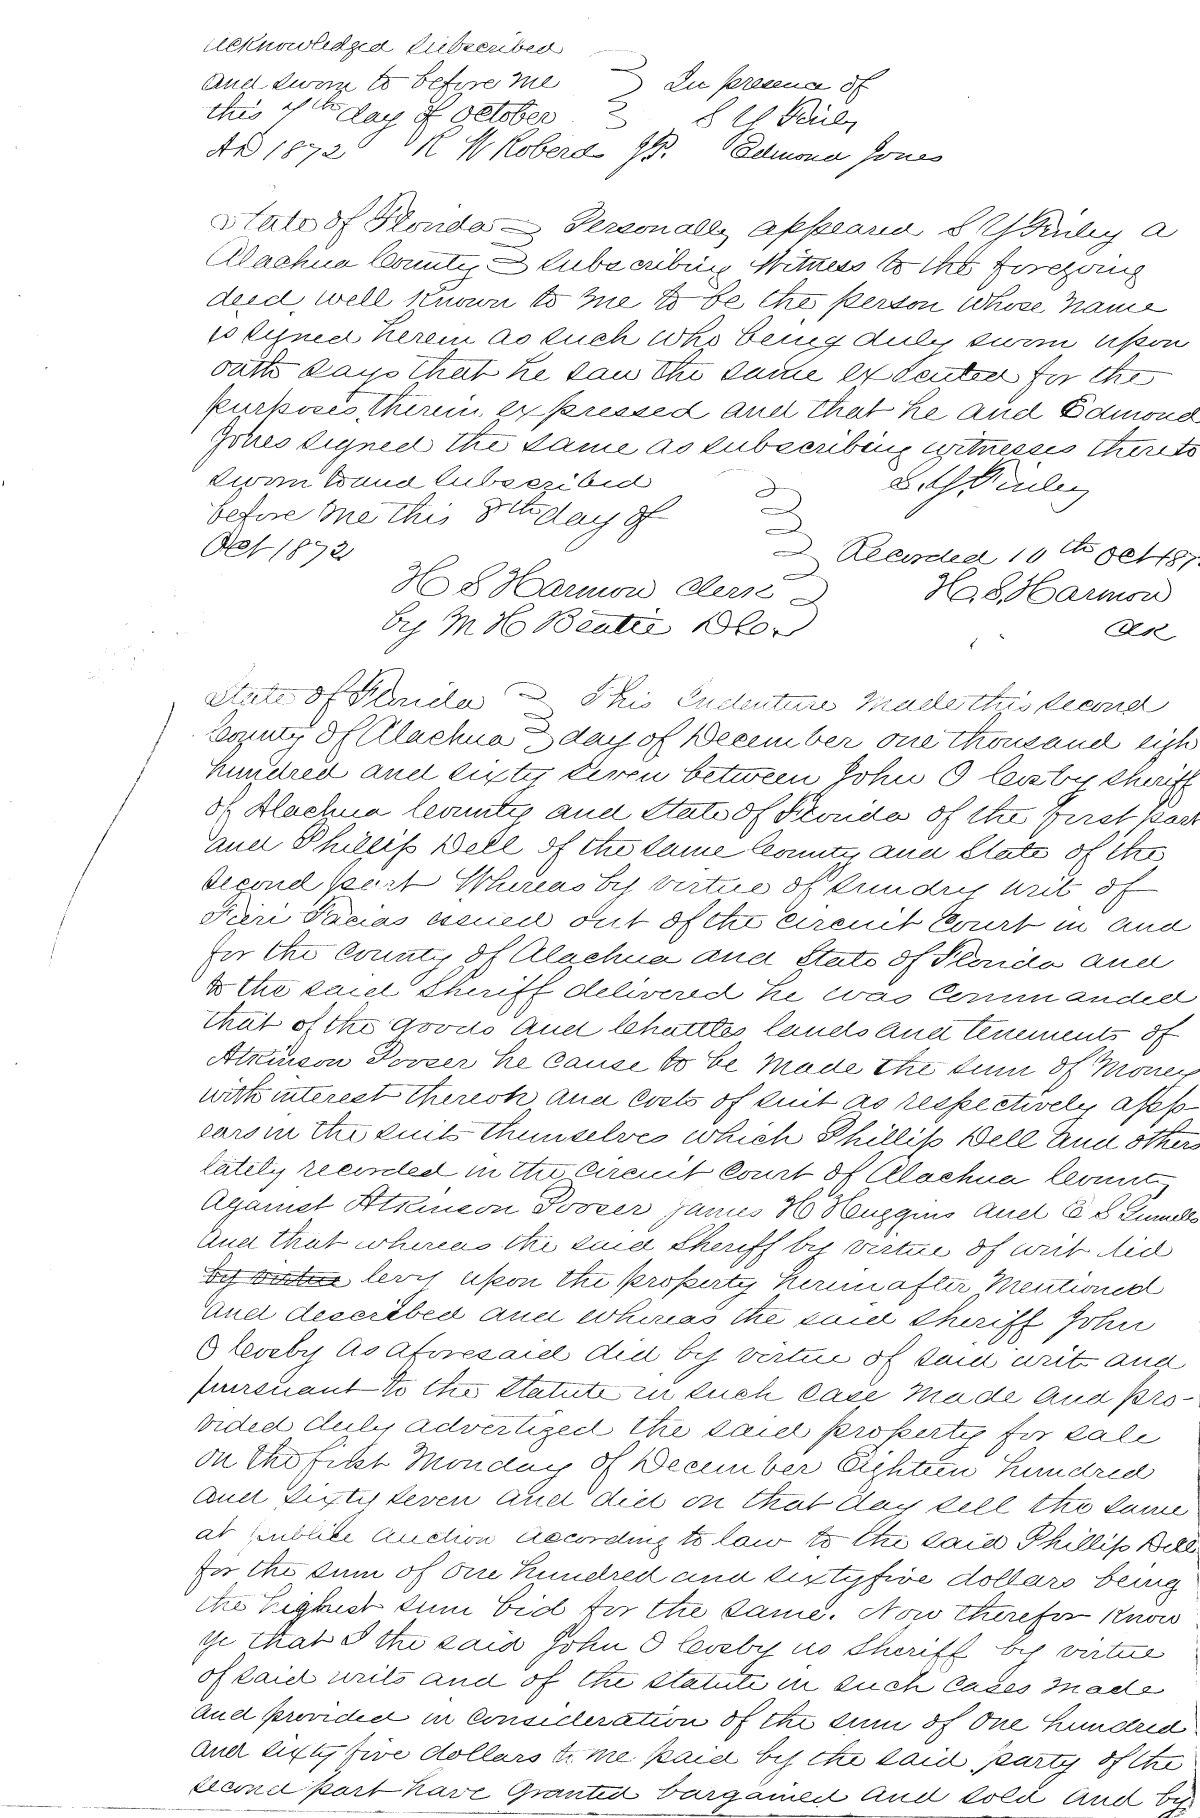 acknowledged subscribed
and sworn to before me In presence of
this 7th day of October S Y Finley
AD 1872 R W Roberds JP. Edmond Jones
State of Florida Personally appeared S Y Finley a
Alachua County subscribing Witness to the foregoing
deed, well known to me to be the person whose name
is signed herein as such who being duly sworn upon
oath says that he saw the same executed for the
purposes, therein, expressed and that he and Edmond
Jones signed the same as subscribing witnesses thereto
sworn to and subscribed S. Y. Finley
before me this 8th day of
Oct 1872 Recorded 10th Oct 187
H S Harmon Clerk H. S. Harmon
by M H Beatie D Co. Clk
State of Florida This Indenture Made this second
County of Alachua day of December one thousand eigh
hundred and sixty seven between John O Cevsby sheriff
of Alachua County and State of Florida of the first part
and Phillip Dell of the same County and State of the
second part Whereas by virtue of sundry writ of
Fieri Facias issued out of the circuit Court in and
for the County of Alachua and State of Florida and
to the said Sheriff delivered he was Commanded
that of the goods and Chattles lands and tenements of
Atkinson Pooser he cause to be made the sum of Money
with interest thereon and costs of suit as respectively app-
ears in the suits themselves which Phillip Dell and others
lately recorded in the Circuit Court of Alachua County
Against Atkinson Pooser James H Huggins and E S
and that whereas the said Sheriff by virtue of writ did
by virtue levy upon the property herin after Mentioned
and described and whereas the said sheriff John
O Cevsby as aforesaid did by virtue of said writ and
pursuant to the statute in such case made and pro-
vided duly advertized the said property for sale
on the first Monday of December Eighteen hundred
and sixty seven and did on that day sell the same
at publice auction according to law to the said Phillip Dell
for the sum of one hundred and sixty five dollars being
the highest sum bid for the same. Now therefor Know
ye that I the said John O Cevsby as Sheriff by virtue
of said writs and of the statute in such cases made
and provided in consideration of the sum of one hundred
and sixty five dollars to me paid by the said party of the
second part have granted bargained and sold and by